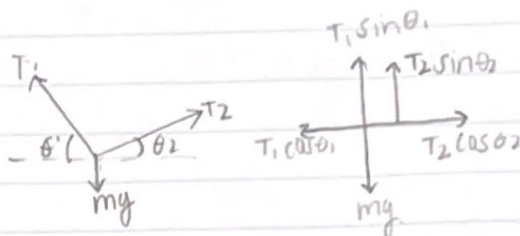 T₁
T₂
θ₁
θ₂
mg
T₁ sinθ₁
T₂ sinθ₂
T₁ cosθ₁
T₂ cosθ₂
mg